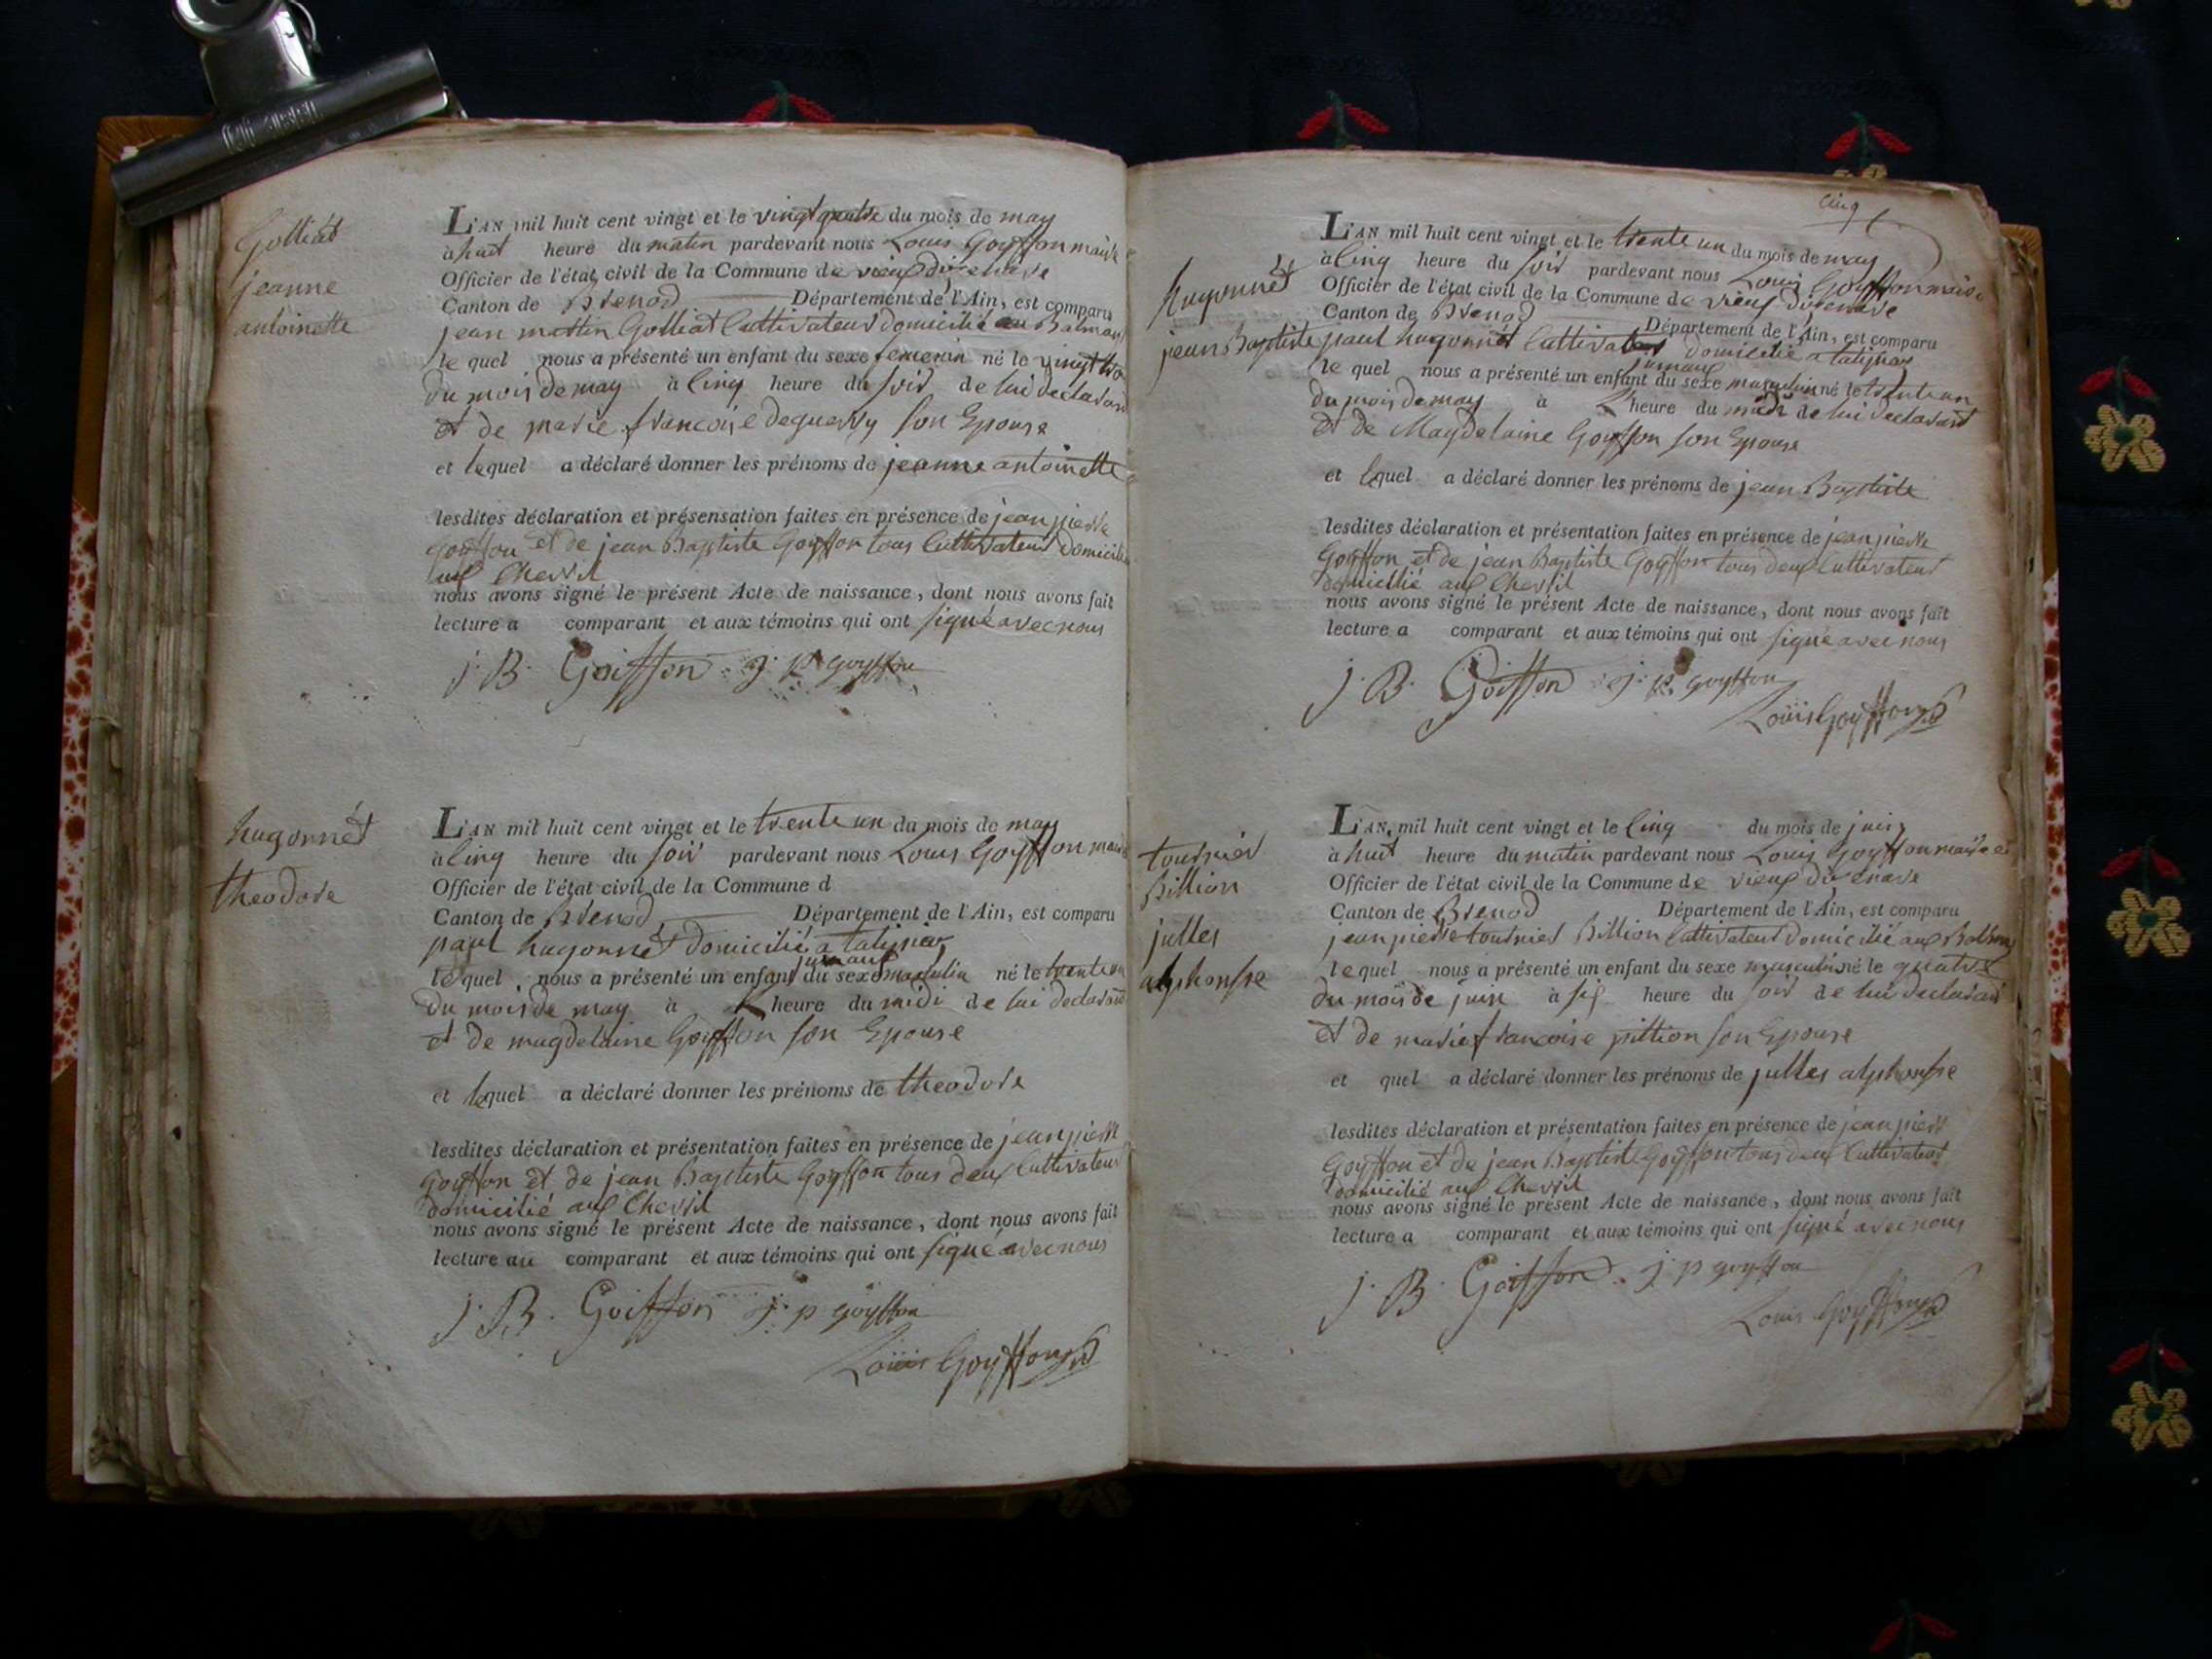 Golliat
jeanne
antoinette
L'AN mil huit cent vingt et le vingt quatre du mois de may
à huit heure du matin pardevant nous Louis Goyffon maire
Officier de l'état civil de la Commune de vieux dizenave
Canton de Brenod Département de l'Ain, est comparu
jean martin Golliat Cultivateur domicilié au Balmay
le quel nous a présenté un enfant du sexe femenin né le vingt tro
du mois de may à Cinq heure du soir de lui declarant
et de marie francoise deguerry son Epouse
et lequel a déclaré donner les prénoms de jeanne antoinette
lesdites déclaration et présensation faites en présence de jean pierre
Goyffon et de jean Baptiste Goyffon tous Cultivateur domicilié
aux Chevril
nous avons signé le présent Acte de naissance, dont nous avons fait
lecture a comparant et aux témoins qui ont signé avec nous
j. B. Goiffon j. p. goyffon
hugonnét
theodore
L'AN mil huit cent vingt et le trente un du mois de may
à Cinq heure du soir pardevant nous Louis Goyffon maire
Officier de l'état civil de la Commune d
Canton de Brenod Département de l'Ain, est comparu
paul hugonnét domicilié a talipiay
jumaux
lequel nous a présenté un enfant du sexe masculin né le trente un
du mois de may à heure du midi de lui declarant
et de magdelaine Goyffon son Epouse
et lequel a déclaré donner les prénoms de theodore
lesdites déclaration et présentation faites en présence de jean pierre
Goyffon et de jean Baptiste Goyffon tous deux Cultivateur
domicilié aux Chevril
nous avons signé le présent Acte de naissance, dont nous avons fait
lecture au comparant et aux témoins qui ont signé avec nous
j. B. Goiffon j. p goyffon
Louis Goyffon
Cinq
hugonnét
jean Baptiste
L'AN mil huit cent vingt et le trente un du mois de may
à Cinq heure du soir pardevant nous Louis Goyffon maire
Officier de l'état civil de la Commune de vieux dizenave
Canton de Brenod Département de l'Ain, est comparu
paul hugonnét Cultivateur domicilié a talipiay
jumaux
le quel nous a présenté un enfant du sexe masculin né le trente un
du mois de may à heure du midi de lui declarant
et de Magdelaine Goyffon son Epouse
et lequel a déclaré donner les prénoms de jean Baptiste
lesdites déclaration et présentation faites en présence de jean pierre
Goyffon et de jean Baptiste Goyffon tous deux Cultivateur
domicilié aux Chevril
nous avons signé le présent Acte de naissance, dont nous avons fait
lecture a comparant et aux témoins qui ont signé avec nous
j. B. Goiffon j. p. goyffon
Louis Goyffon
tournier
Billion
julles
alphonsse
L'AN mil huit cent vingt et le Cinq du mois de juin
à huit heure du matin pardevant nous Louis Goyffon maire et
Officier de l'état civil de la Commune de vieux dizenave
Canton de Brenod Département de l'Ain, est comparu
jean pierre tournier Billion Cultivateur domicilié aux Balmay
lequel nous a présenté un enfant du sexe masculin né le quatre
du mois de juin à six heure du soir de lui declarant
et de marie francoise pittion son Epouse
et quel a déclaré donner les prénoms de julles alphonsse
lesdites déclaration et présentation faites en présence de jean pierre
Goyffon et de jean Baptiste Goyffon tous deux Cultivateur
domicilié aux Chevril
nous avons signé le présent Acte de naissance, dont nous avons fait
lecture a comparant et aux témoins qui ont signé avec nous
j. B. Goiffon. j. p goyffon
Louis Goyffon